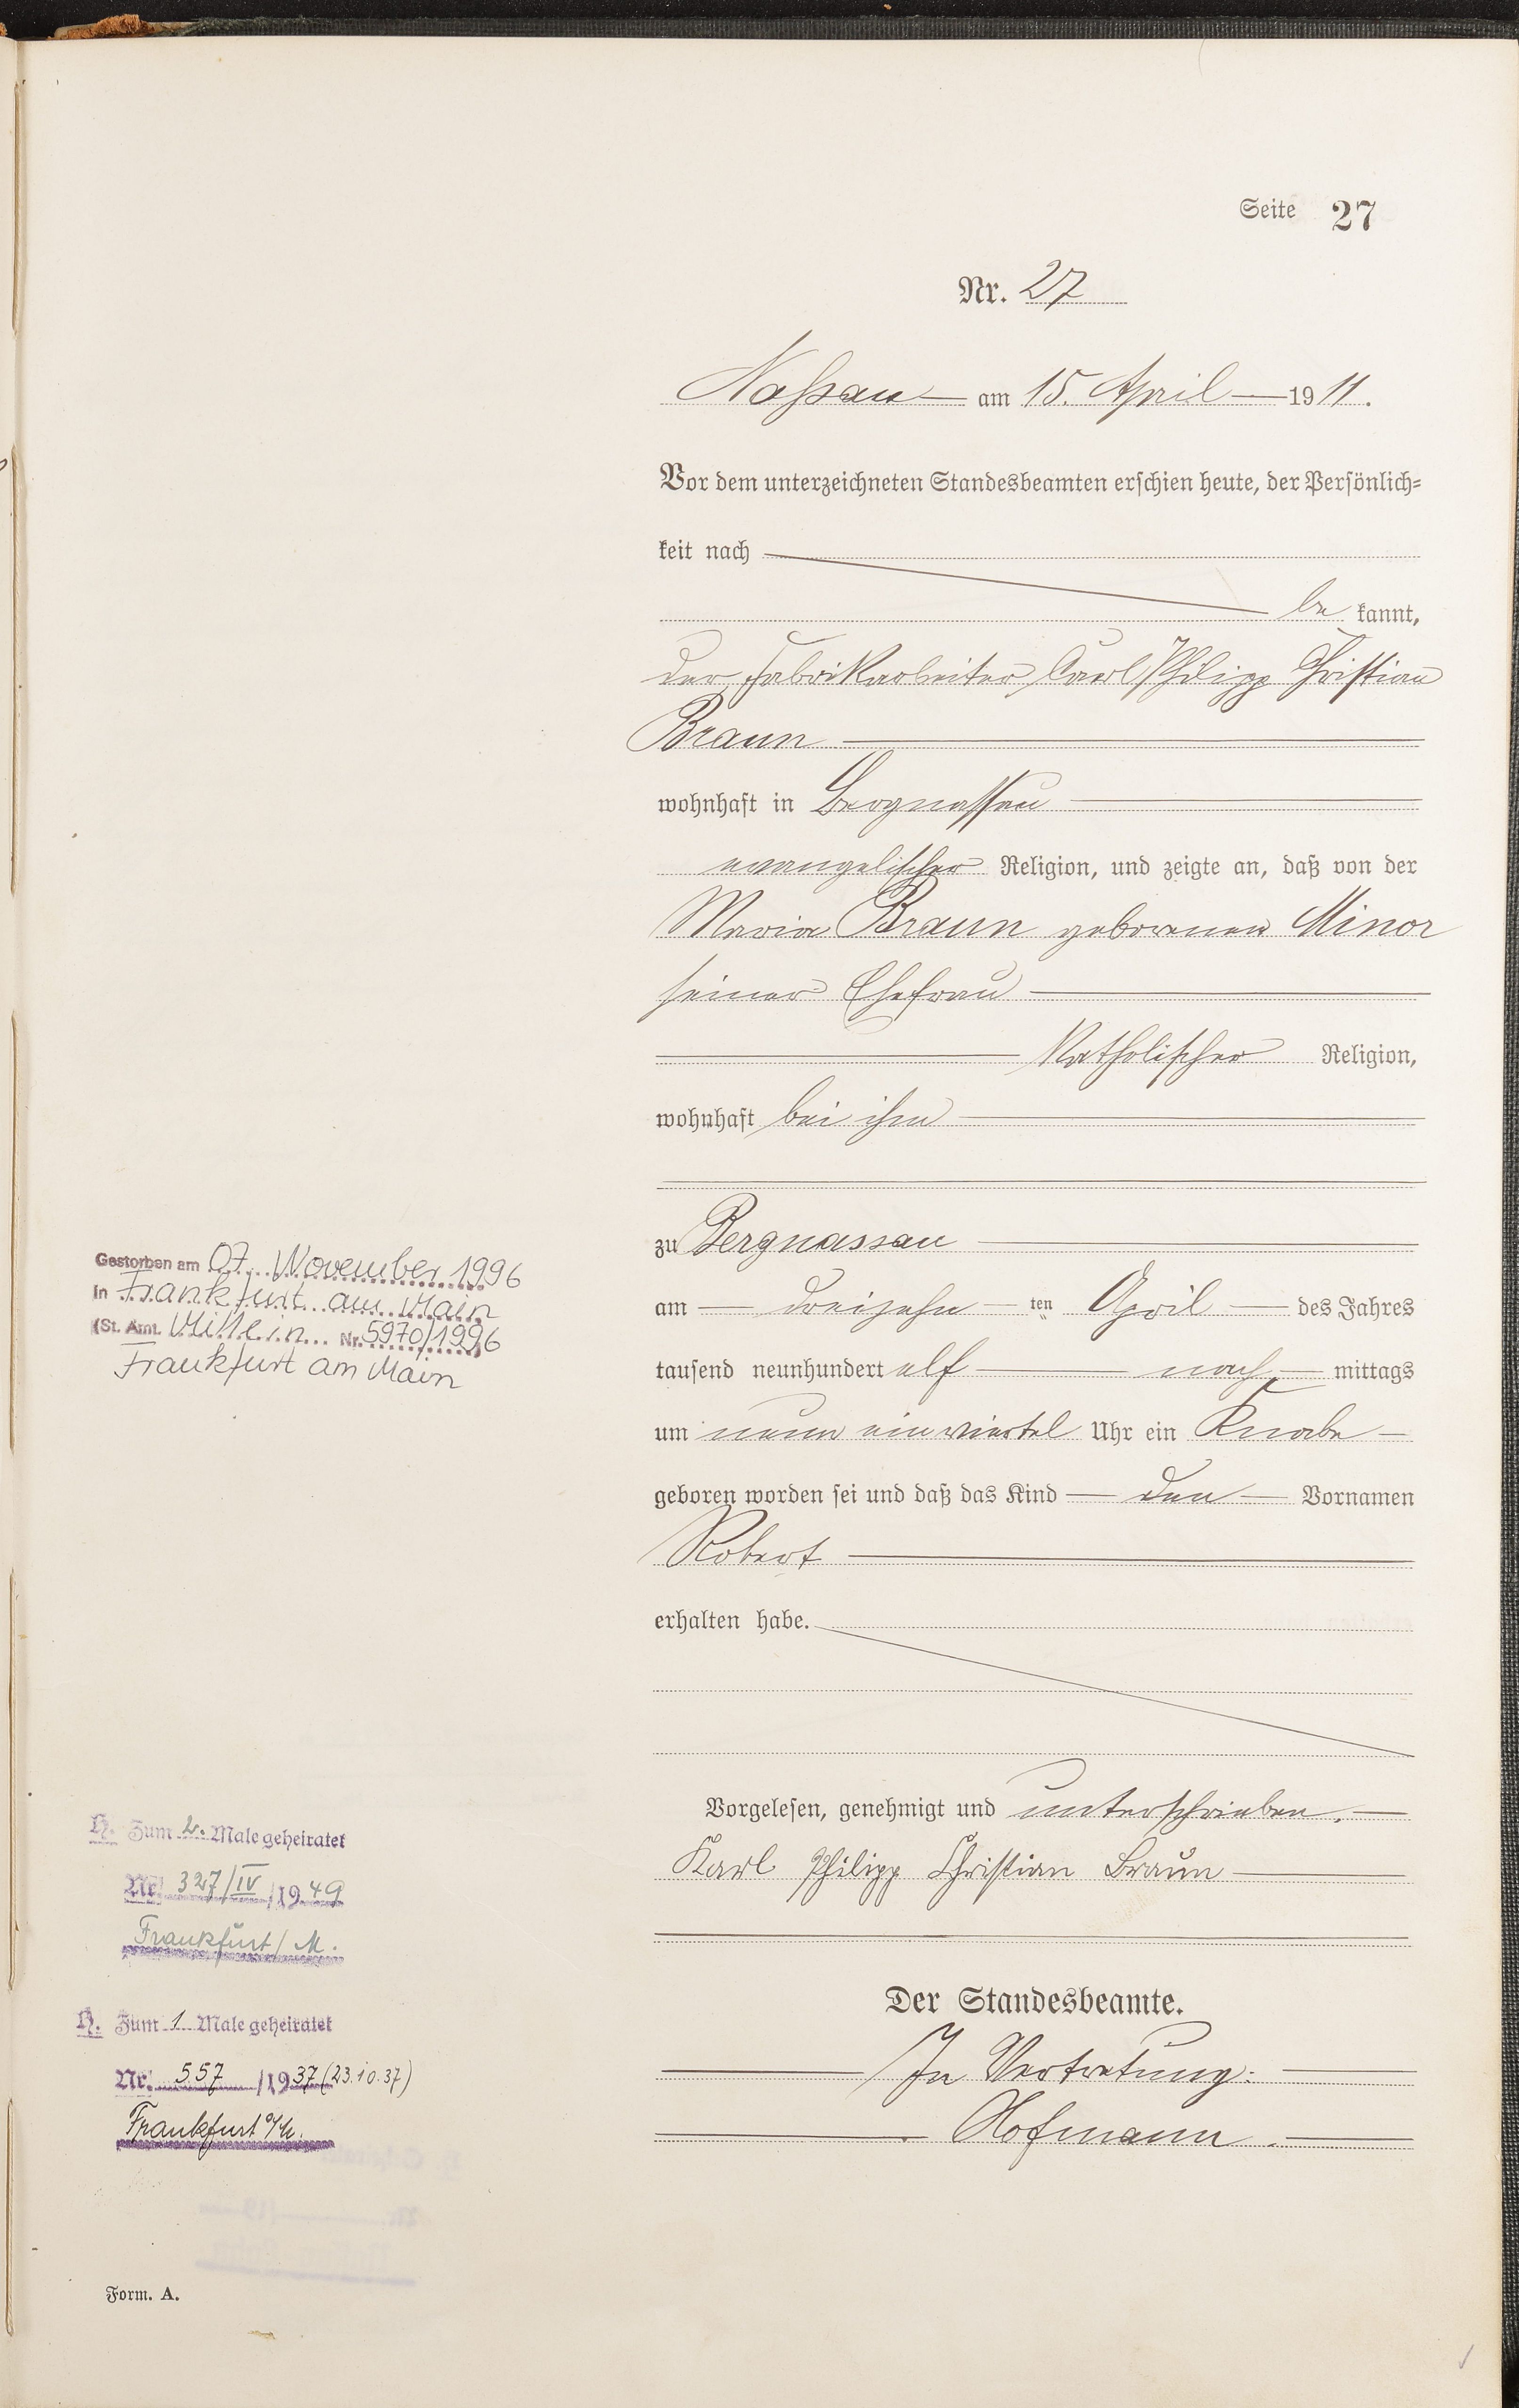 Seite 27
Nr. 27
Nassau am 15. April 1911.
Vor dem unterzeichneten Standesbeamten erschien heute, der Persönlich=
keit nach
be kannt,
der Fabrikarbeiter Carl Philipp Christian
Braun
wohnhaft in Bergnassau
evangelischer Religion, und zeigte an, daß von der
Maria Braun geborenen Minor
seiner Ehefrau
katholischer Religion,
wohnhaft bei ihm
zu Bergnassau
am dreizehn ten April des Jahres
tausend neunhundert elf nach mittags
um neun einviertel Uhr ein Knabe
geboren worden sei und daß das Kind den Vornamen
Robert
erhalten habe.
Vorgelesen, genehmigt und unterschrieben.
Karl Philipp Christian Braun
Der Standesbeamte.
In Vertretung:
Hofmann.
Gestorben am 07. November 1996
in Frankfurt am Main
(St. Amt Mitte in Nr. 5970/1996)
Frankfurt am Main
H. Zum 2. Male geheiratet
Nr. 327/IV/1949
Frankfurt/M.
H. Zum 1 Male geheiratet
Nr. 557/1937 (23.10.37)
Frankfurt a/M.
Form. A.